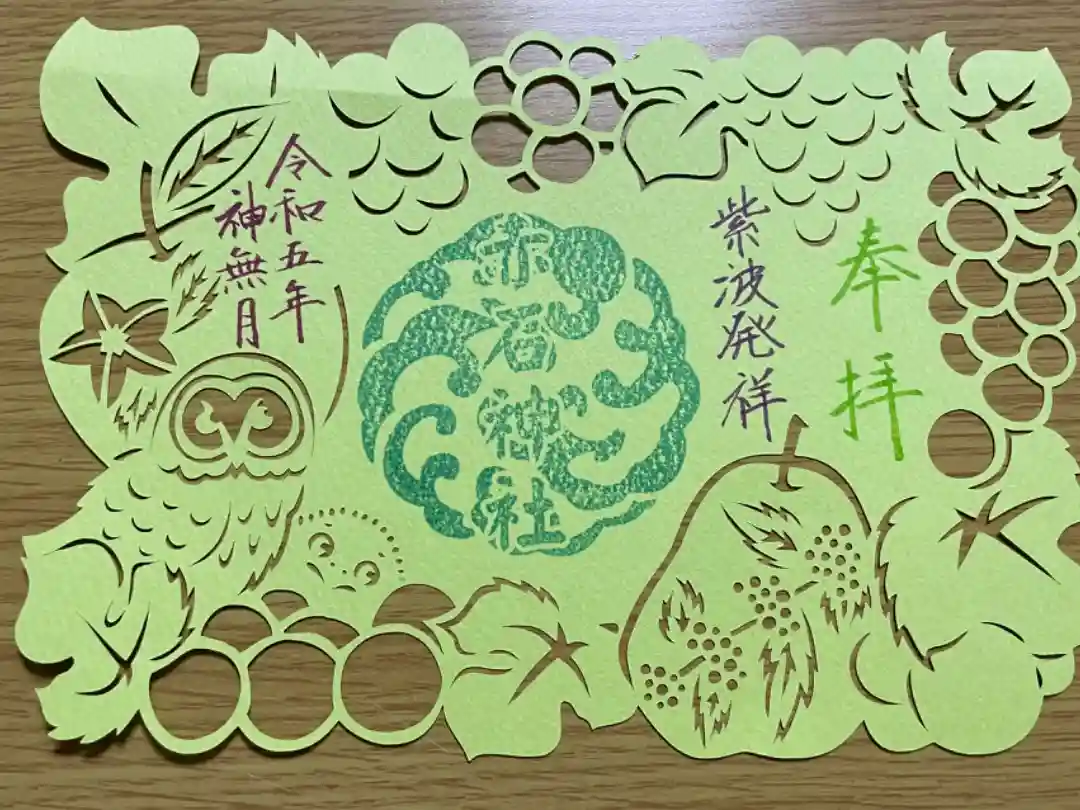 奉拝
紫波発祥
赤石神社
令和五年
神無月